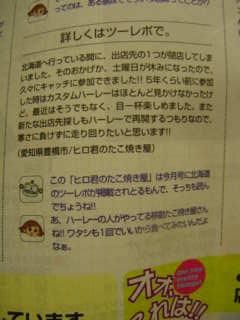 詳しくはツーレポで。
北海道へ行っている間に、出店先の1つが閉店してし
まいました。そのおかげか、土曜日が休みになったので、
久々にキャッチに参加できました!! 5年くらい前に参加
した時はカスタムハーレーはほとんど見かけなかったけ
ど、最近はそうでもなく、目一杯楽しめました。また
新たな出店探しもハーレーで再開するつもりなので、
寒さに負けずに走り回りたいと思います!!
(愛知県豊橋市/ヒロ君のたこ焼き屋)
この「ヒロ君のたこ焼き屋」は今月号に北海道
のツーレポが掲載されとるもんで、そっちも読ん
でちょうね!!
あ、ハーレーの人がやってる移動たこ焼き屋さん
ね!! ワタシも1回でいいから食べてみたいんだよ
なぁ。
これは!!